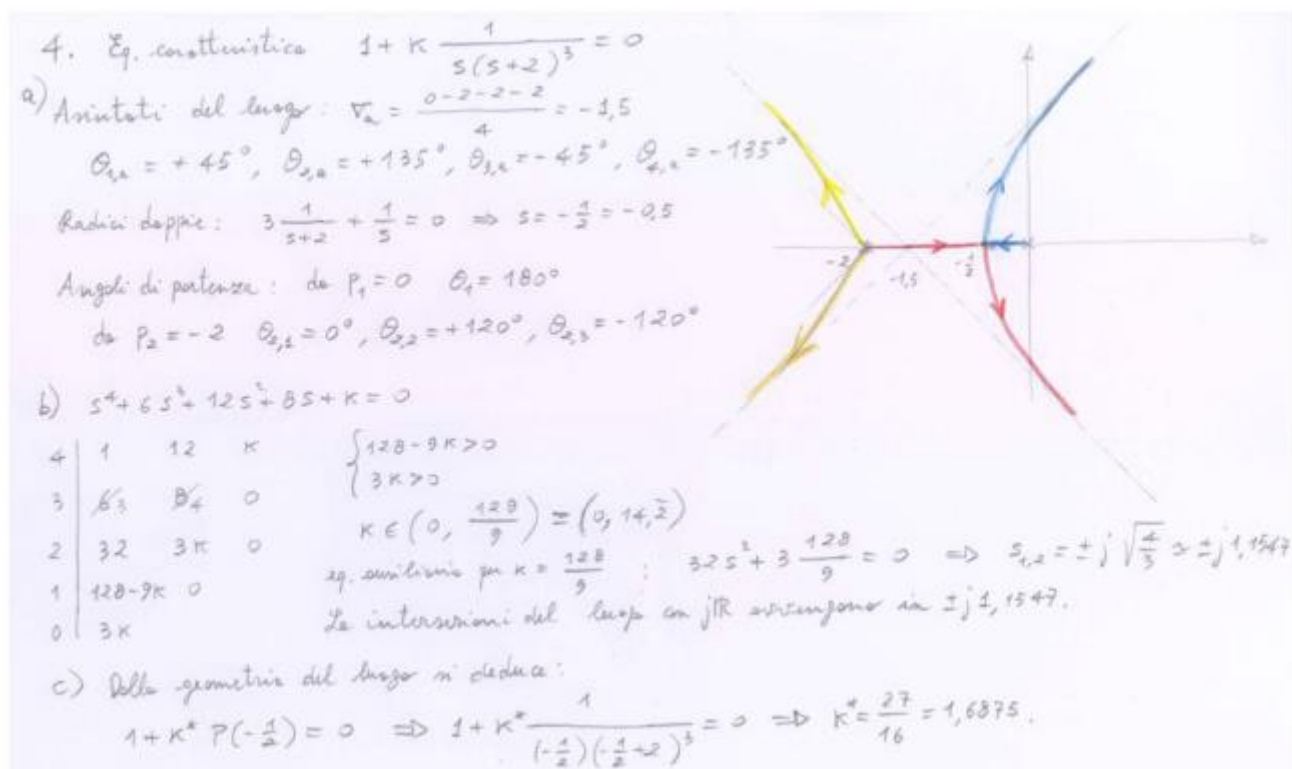 4. Eq. caratteristica 1 + K 1/(s(s+2)³) = 0
a) Asintoti del luogo : σₐ = (0-2-2-2)/4 = -1,5
θ₁,ₐ = +45°, θ₂,ₐ = +135°, θ₃,ₐ = -45°, θ₄,ₐ = -135°
Radici doppie : 3 1/(s+2) + 1/s = 0 ⇒ s = -1/2 = -0,5
Angoli di partenza : da p₁ = 0 θ₁ = 180°
da p₂ = -2 θ₂,₁ = 0°, θ₂,₂ = +120°, θ₂,₃ = -120°
-2 -1,5 -1/2
b) s⁴ + 6s³ + 12s² + 8s + K = 0
4 | 1 12 K
3 | 6̸ 3 8̸ 4 0
2 | 32 3K 0
1 | 128-9K 0
0 | 3K
{ 128-9K > 0
3K > 0
K ∈ (0, 128/9) = (0, 14,2̄)
eq. ausiliaria per K = 128/9 : 32s² + 3 128/9 = 0 ⇒ s₁,₂ = ± j √(4/3) ≃ ± j 1,1547
Le intersezioni del luogo con jℝ avvengono in ± j 1,1547.
c) Dalla geometria del luogo si deduce :
1 + K* P(-1/2) = 0 ⇒ 1 + K* 1/((-1/2)(-1/2+2)³) = 0 ⇒ K* = 27/16 = 1,6875.